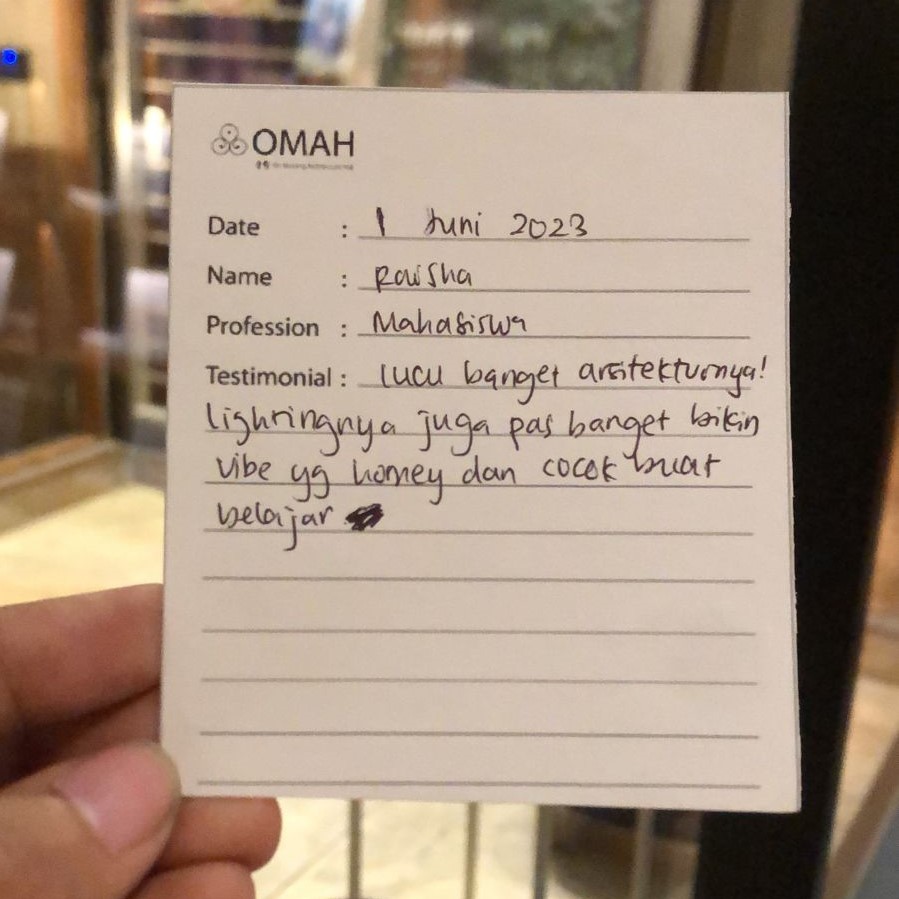 OMAH
Date : 1 Juni 2023
Name : Raisha
Profession : Mahasiswa
Testimonial : lucu banget arsitekturnya!
lightingnya juga pas banget bikin
vibe yg homey dan cocok buat
belajar